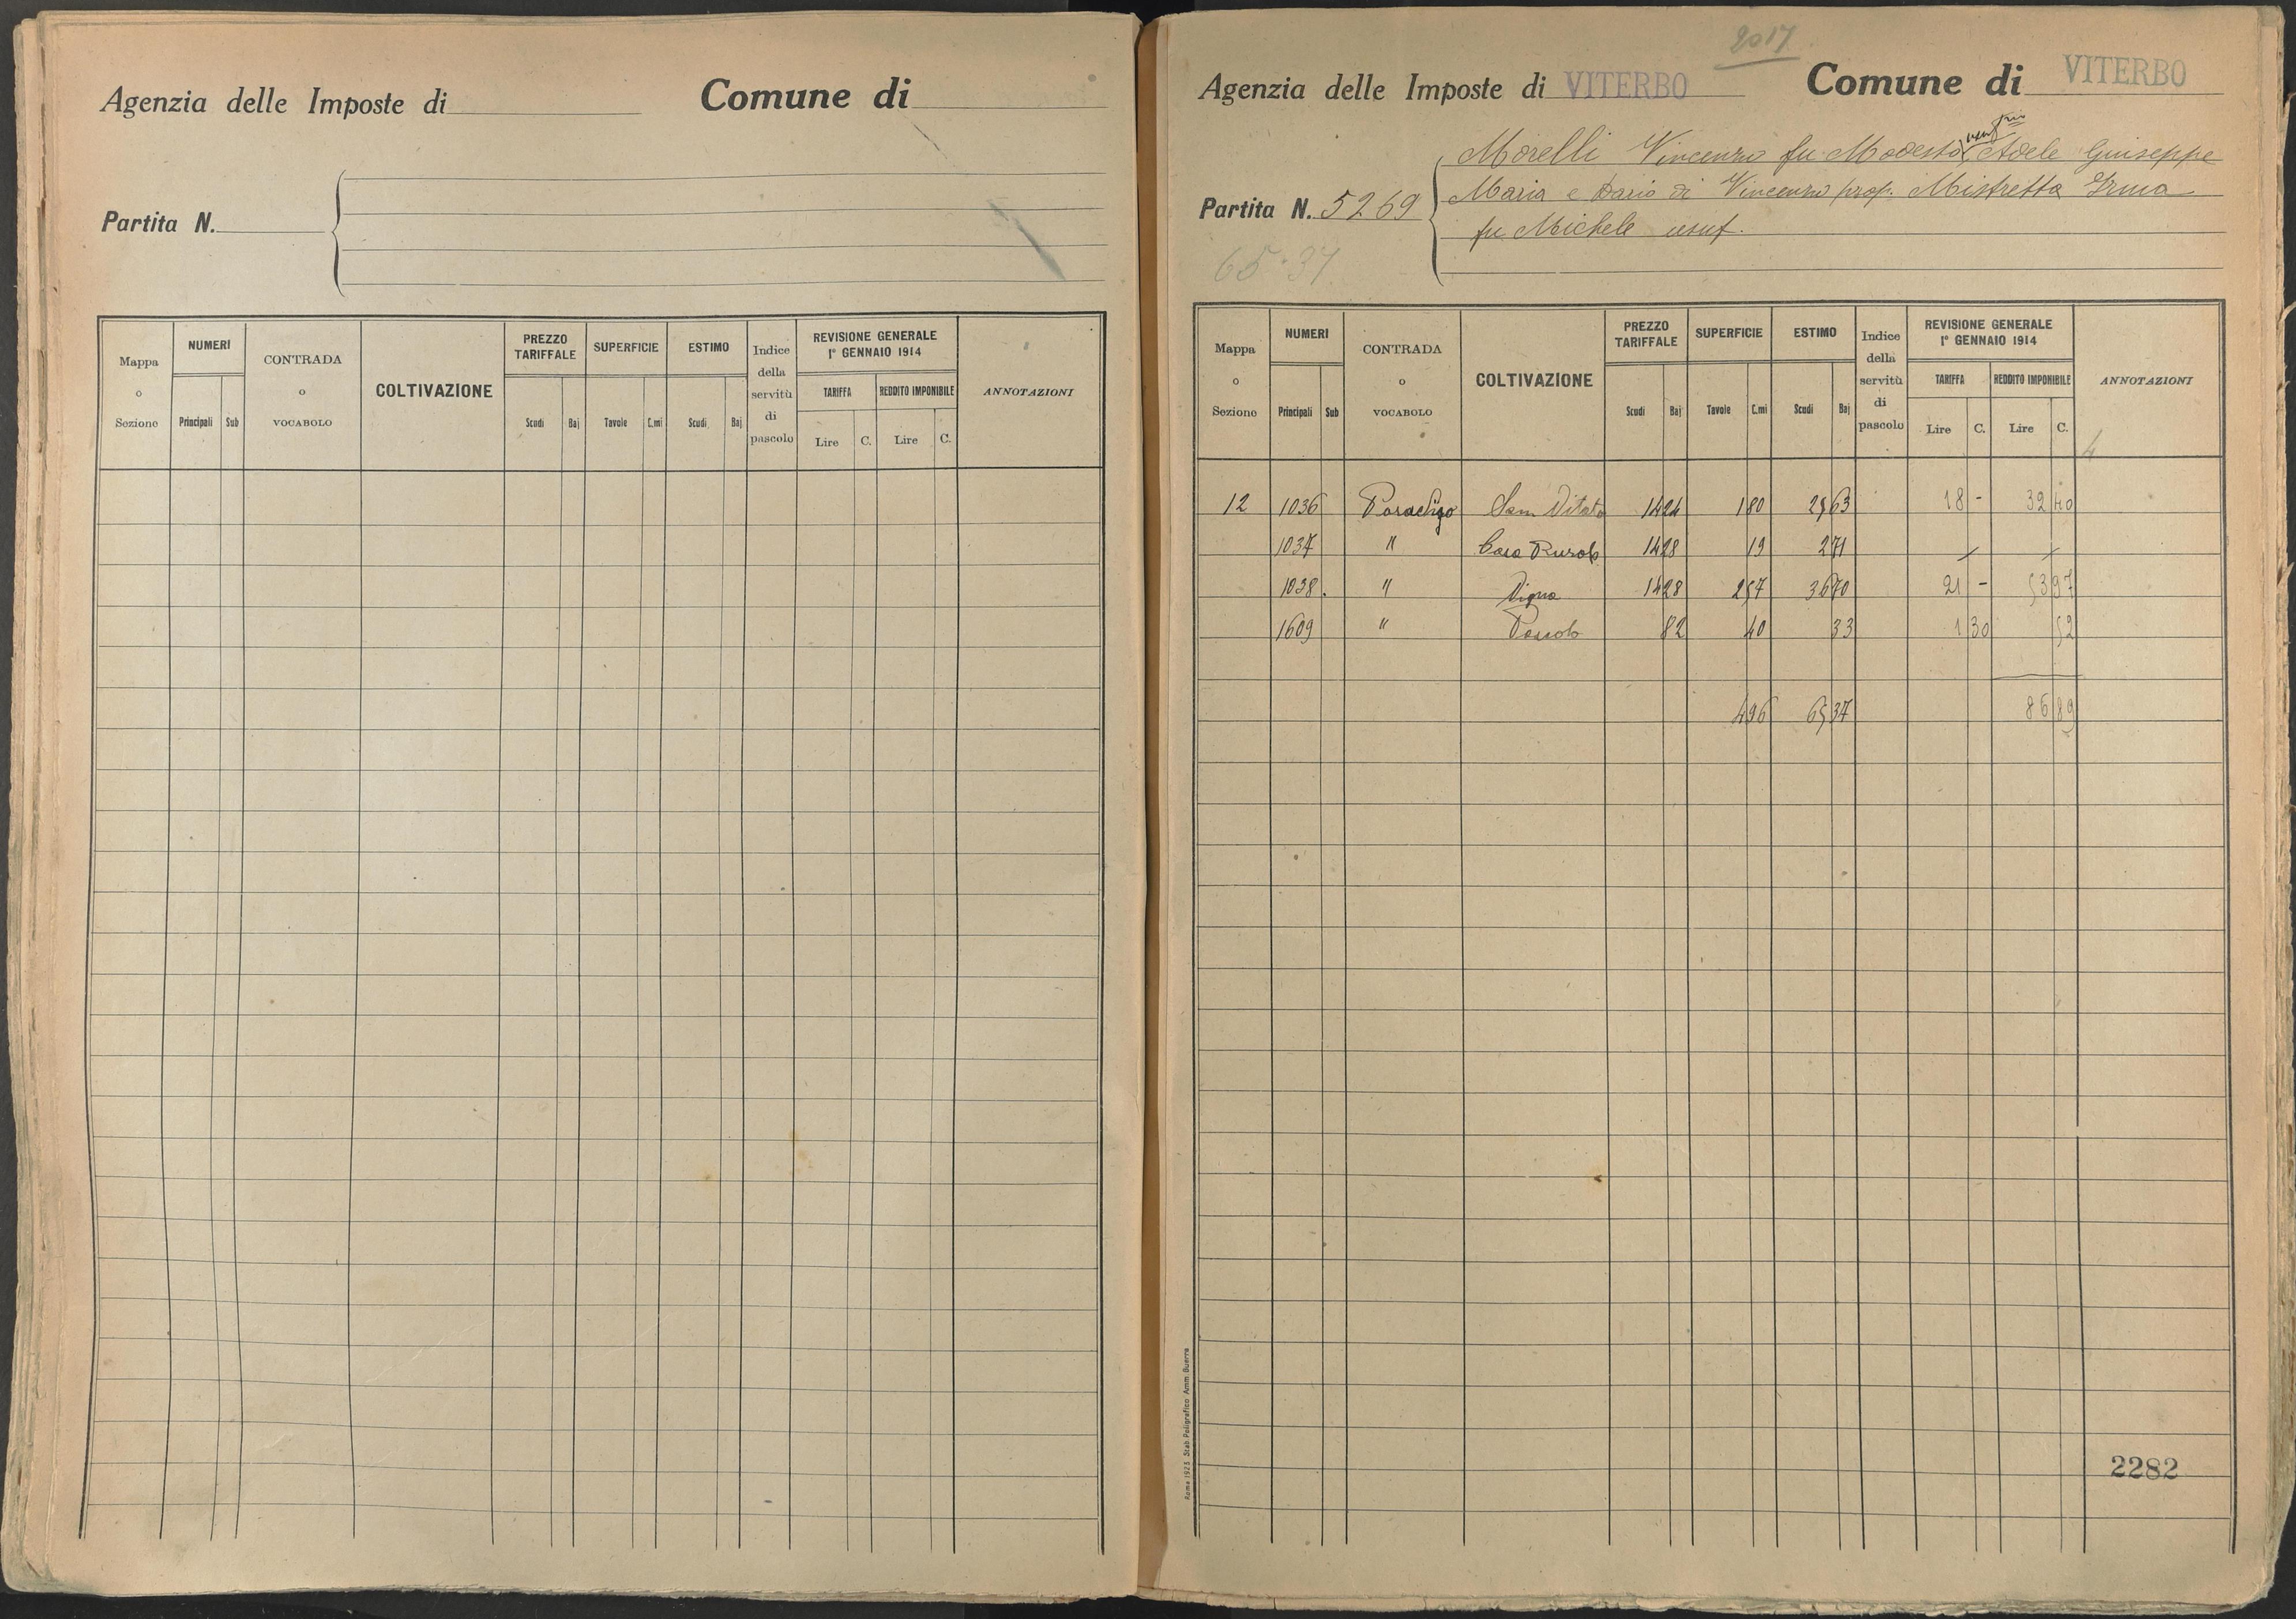 Agenzia delle Imposte di
Comune di
Partita N.
Mappa o Sezione
NUMERI
Principali
Sub
CONTRADA o VOCABOLO
COLTIVAZIONE
PREZZO TARIFFALE
Scudi
Baj
SUPERFICIE
Tavole
C.mi
ESTIMO
Scudi
Baj
Indice della servitù di pascolo
REVISIONE GENERALE
1° GENNAIO 1914
TARIFFA
Lire
C.
REDDITO IMPONIBILE
Lire
C.
ANNOTAZIONI
2017
Agenzia delle Imposte di VITERBO
Comune di VITERBO
Partita N. 5269
65.37
Morelli Vincenzo fu Modesto Adele Giuseppe
Maria e Dario di Vincenzo prop. Mistretta Irma
fu Michele usuf.
Mappa o Sezione
NUMERI
Principali
Sub
CONTRADA o VOCABOLO
COLTIVAZIONE
PREZZO TARIFFALE
Scudi
Baj
SUPERFICIE
Tavole
C.mi
ESTIMO
Scudi
Baj
Indice della servitù di pascolo
REVISIONE GENERALE
1° GENNAIO 1914
TARIFFA
Lire
C.
REDDITO IMPONIBILE
Lire
C.
ANNOTAZIONI
4
12 1036 Sem Vitato 1424 1 80 25 63 18 - 32 40
1037 " Casa Rurale 1428 19 2 71
1038. " Vigna 1428 2 57 36 70 21 - 53 97
1609 " Pascolo 82 40 33 1 30 52
4 96 65 37 86 89
2282
Roma 1923 Stab. Poligrafico Amm. Guerra